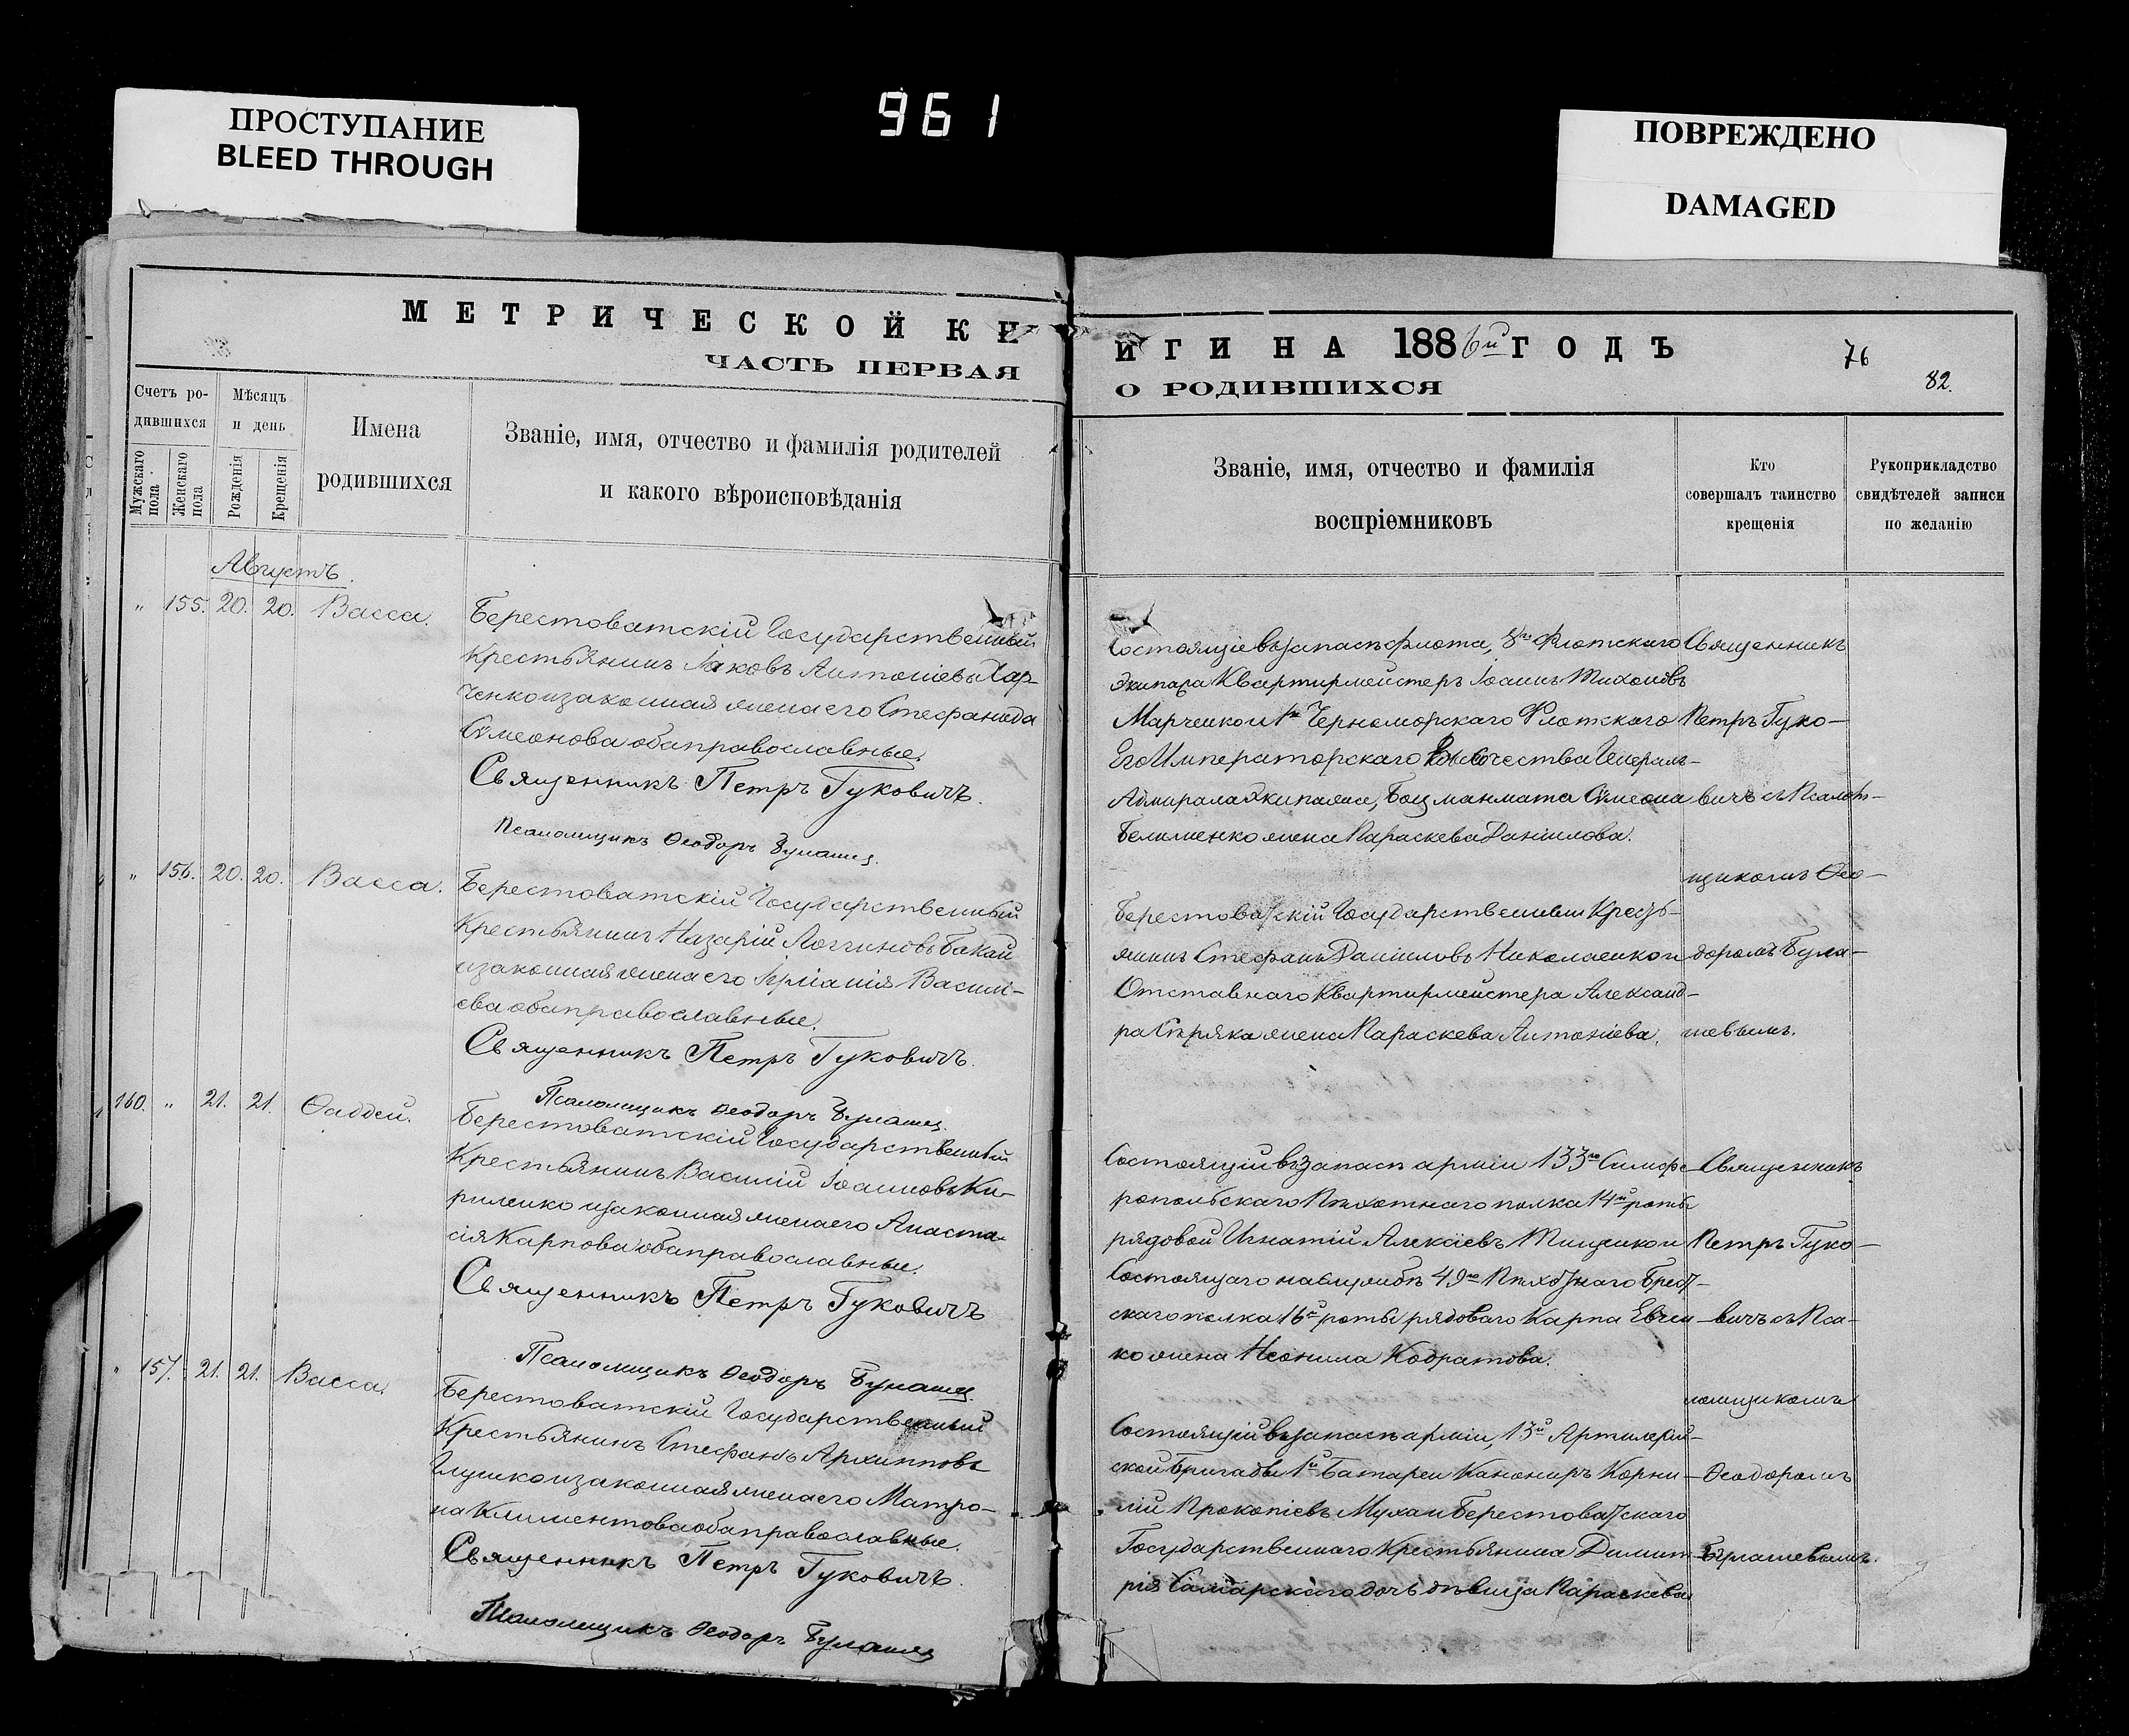 ПРОСТУПАНИЕ
BLEED THROUGH
961
ПОВРЕЖДЕНО
DAMAGED
МЕТРИЧЕСКОЙ КН
ЧАСТЬ ПЕРВАЯ
ИГИ НА 1886й ГОДЪ
О РОДИВШИХСЯ
76
82.
Счетъ ро-
дившихся
Мужскаго пола.
Женскаго пола
Мѣсяцъ
и день
Рожденія
Крещенія
Имена
родившихся
Званіе, имя, отчество и фамилія родителей
и какого вѣроисповѣданія
Званіе, имя, отчество и фамилія
воспріемниковъ
Кто
совершалъ таинство
крещенія
Рукоприкладство
свидѣтелей записи
по желанію
Августъ.
" 155. 20. 20. Васса.
Берестоватскій Государственный
Крестьянинъ Іаковъ Антоніевъ Хар-
ченко и законная жена его Стефанида
Симеонова оба православные.
Священникъ Петръ Гуковичъ.
Псаломщикъ Ѳеодоръ Булашев.
Состоящіе въ запасѣ флота, 8го Флотскаго
Экипажа Квартирмейстеръ Іоаннъ Тихоновъ
Марченко и 1го Черноморскаго Флотскаго
Его Императорскаго Высочества Генералъ-
Адмирала Экипажа, Боцманмата Симеона
Белименко жена Параскева Даніилова.
Священникъ
Петръ Гуко-
вичъ съ Псалом-
щикомъ Ѳео-
доромъ Була-
шевымъ.
" 156. 20. 20. Васса.
Берестоватскій Государственный
Крестьянинъ Назарій Логгиновъ Бакай
и законная жена его Ирпанія Василі-
ева оба православные.
Священникъ Петръ Гуковичъ.
Псаломщикъ Ѳеодоръ Булашев.
Берестоватскій Государственный Кресть-
янинъ Стефанъ Даніиловъ Николаенко и
Отставнаго Квартирмейстера Александ-
ра Сѣряка жена Параскева Антоніева.
160. " 21. 21. Ѳаддей.
Берестоватскій Государственный
Крестьянинъ Василій Іоанновъ Ки-
риленко и законная жена его Анаста-
сія Карпова оба православные.
Священникъ Петръ Гуковичъ
Псаломщикъ Ѳеодоръ Булашев.
Состоящій въ запасѣ арміи 133го Симфе
ропольскаго Пѣхотнаго полка 14й роты
рядовой Игнатій Алексіевъ Тищенко и
Состоящаго на службѣ 49го Пѣхотнаго Брест-
скаго полка 16й роты рядоваго Карпа Евчен
ко жена Неонила Кодратова.
Священникъ
Петръ Гуко-
вичъ съ Пса-
ломщикомъ
Ѳеодоромъ
Булашевымъ.
" 157. 21. 21. Васса.
Берестоватскій Государственный
Крестьянинъ Стефанъ Архипповъ
Глушко и законная жена его Матро-
на Климентова оба православные.
Священникъ Петръ Гуковичъ.
Псаломщикъ Ѳеодоръ Булашев
Состоящій въ запасѣ арміи, 13й Артилерій-
ской Бригады 1й Батареи Канониръ Корни-
лій Прокопіевъ Мухаи Берестоватскаго
Государственнаго Крестьянина Димит-
рія Самарскаго дочь дѣвица Параскева